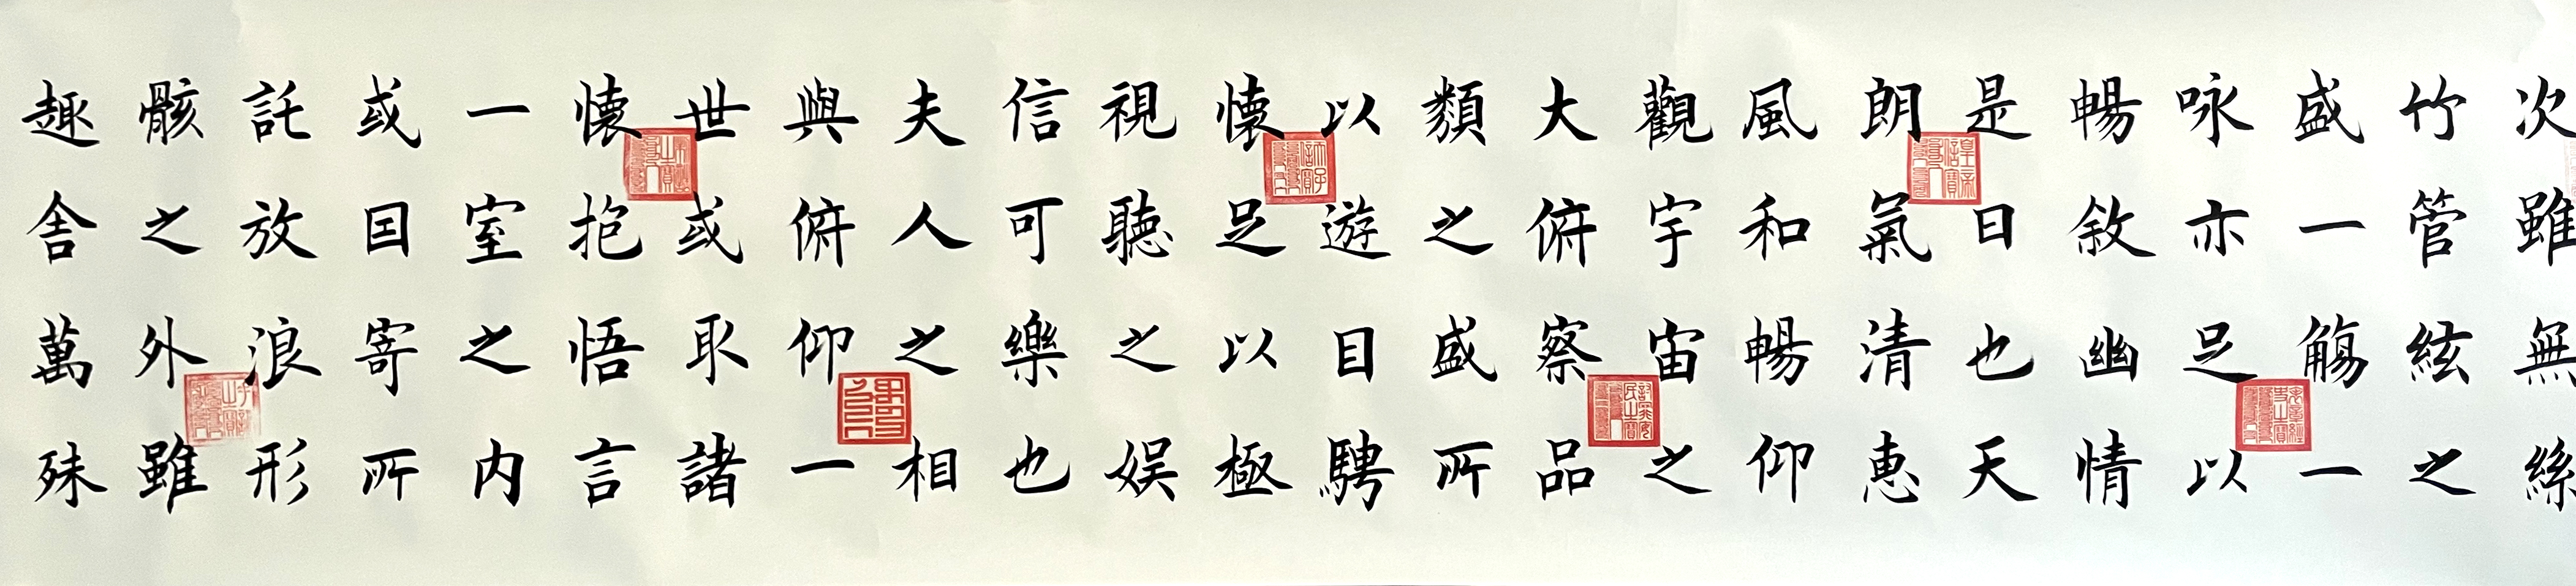 次雖無絲
竹管絃之
盛一觴一
咏亦足以
暢敘幽情
是日也天
朗氣清惠
風和暢仰
觀宇宙之
大俯察品
類之盛所
以遊目騁
懷足以極
視聽之娱
信可樂也
夫人之相
與俯仰一
世或取諸
懷抱悟言
一室之内
或囙寄所
託放浪形
骸之外雖
趣舍萬殊